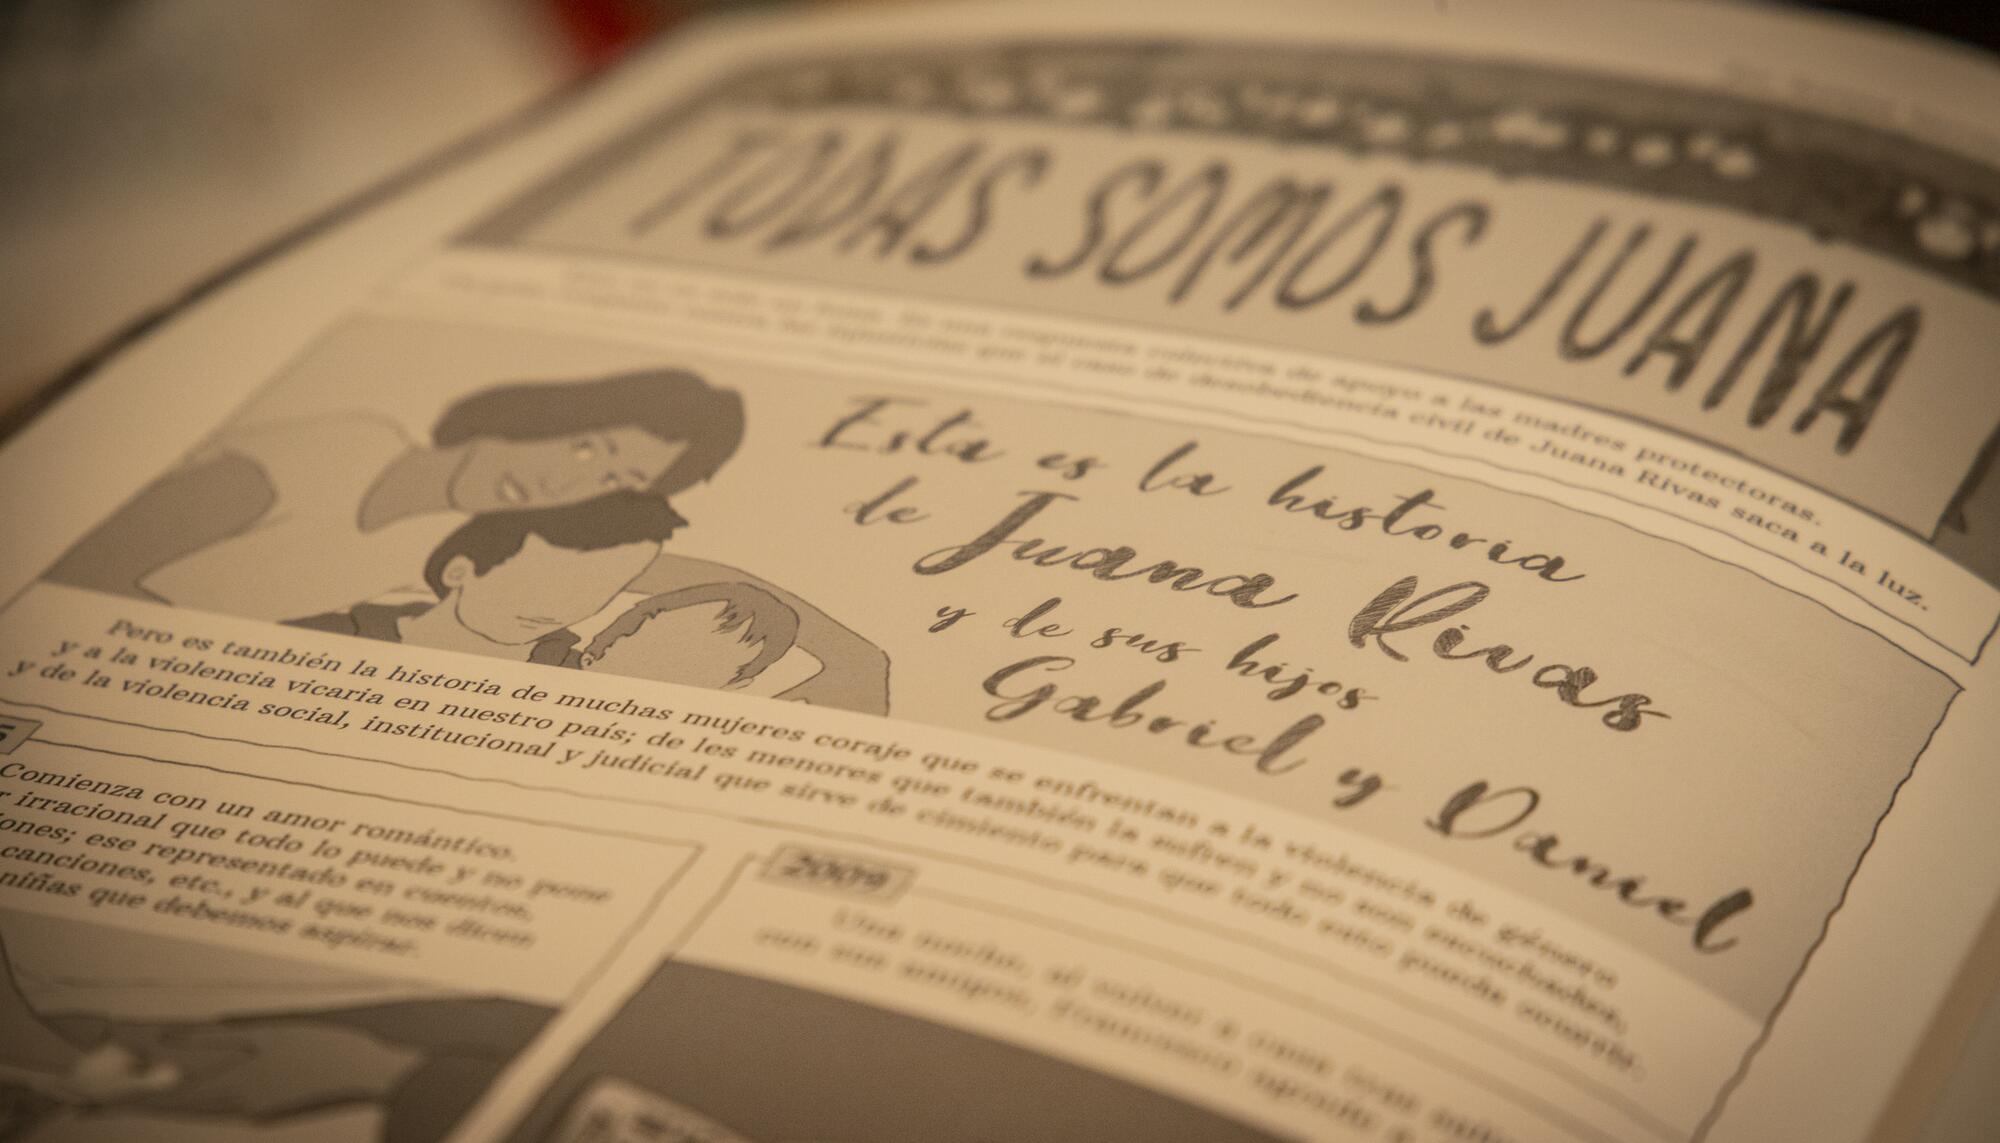 TODAS SOMOS JUANA
una respuesta colectiva de apoyo a las madres protectoras.
que el caso de desobediencia civil de Juana Rivas saca a la luz.
Esta es la historia
de Juana Rivas
y de sus hijos
Gabriel y Daniel
Pero es también la historia de muchas mujeres coraje que se enfrentan a la violencia de género
y a la violencia vicaria en nuestro país; de les menores que también la sufren y no son escuchados,
y de la violencia social, institucional y judicial que sirve de cimiento para que todo esto quede
5
Comienza con un amor romántico.
r irracional que todo lo puede y no pone
ones; ese representado en cuentos,
canciones, etc., y al que nos dicen
niñas que debemos aspirar.
2009
Una noche, al volver a casa
con sus amigos, Francesco